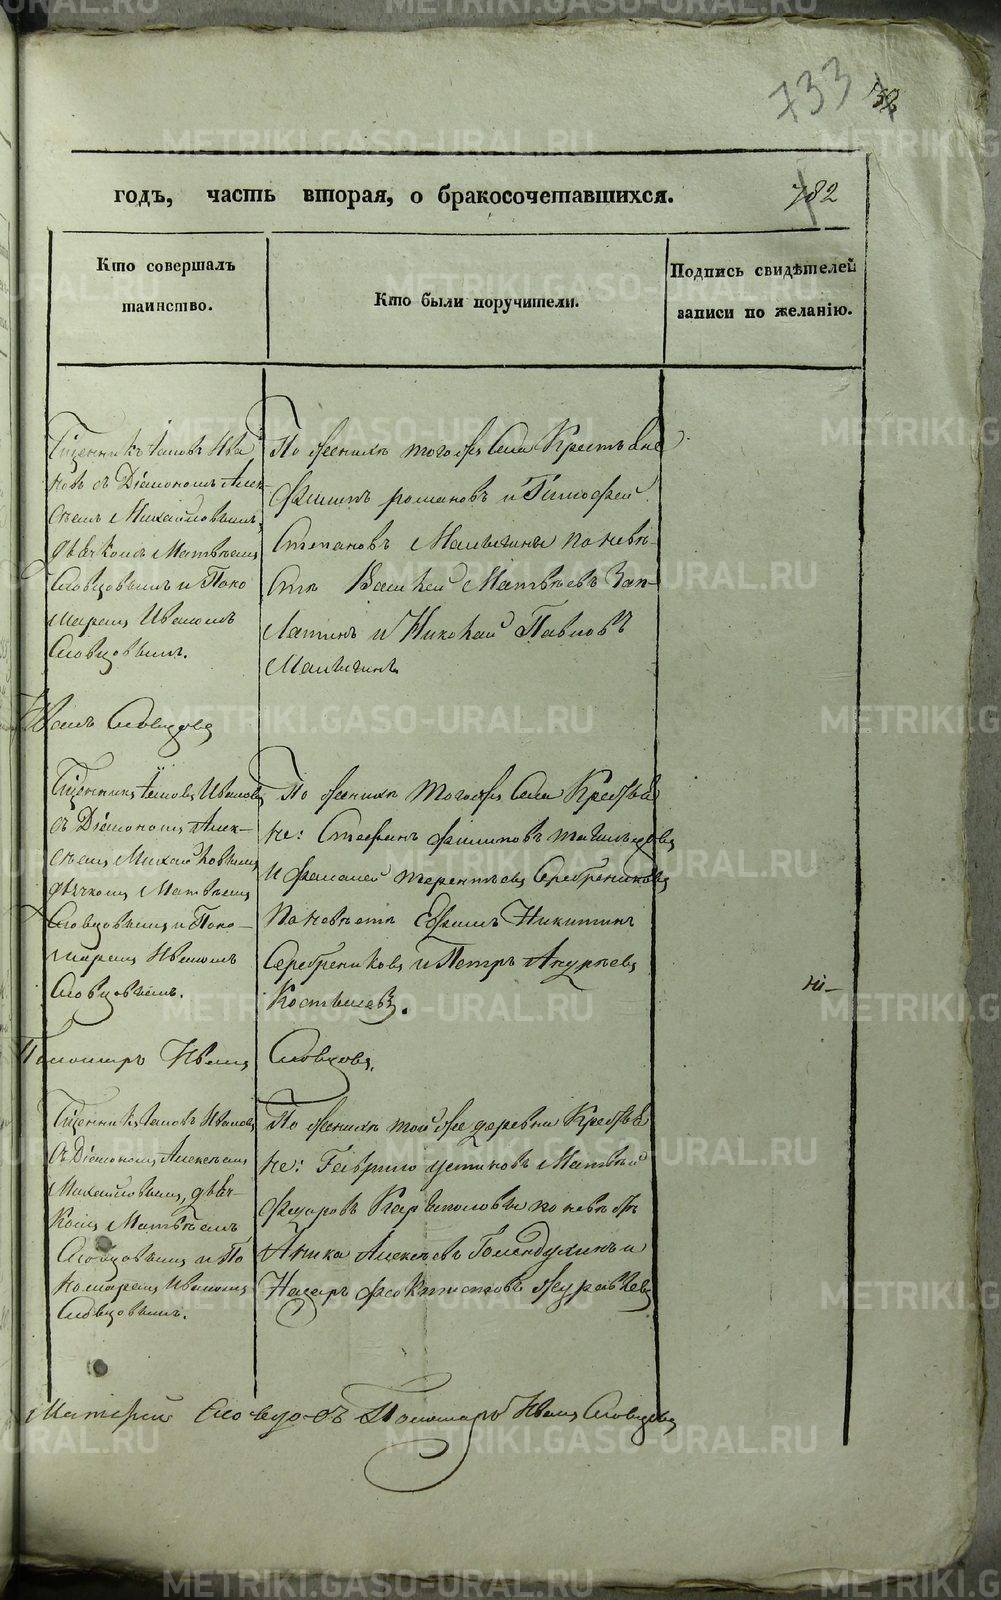 733
782
годъ, часть вторая, о бракосочетавшихся.
Кто совершалъ
таинство.
Кто были поручители.
Подпись свидѣтелей
записи по желанію.
Іаковъ Ива
новъ съ Діакономъ Алек
сѣемъ Михайловымъ,
дьячкомъ Матвѣемъ
Словцовымъ и Поно
маремъ Иваномъ
Словцовымъ.
По женихѣ тогожъ Села Крестьяне
Филипъ романовъ и Тимофей
Степановъ Малыгины по невѣ-
стѣ Матвѣевъ Зап-
латинъ и Николай Павловъ
Малыгинъ
Иванъ Словцовъ
Іаковъ Ивановъ
съ Діакономъ Алек-
сѣемъ Михайловымъ
дьячкомъ Матвѣемъ
Словцовымъ и Поно-
маремъ Иваномъ
Словцовымъ.
По женихѣ тогожъ Села Крестья
не: Стефанъ филиповъ
и терентьевъ Серебрениковъ
По невѣстѣ Ефимъ Никитинъ
Серебрениковъ и Петръ Андреевъ
Костылевъ.
Пономарь Иванъ Словцовъ.
Іаковъ Ивановъ
съ Діакономъ Алексѣемъ
Михайловымъ, дьяч-
комъ Матвѣемъ
Словцовымъ и По
номаремъ Иваномъ
Словцовымъ.
По женихѣ той же деревни Крестья
не: Гаврило устиновъ Матвѣй
федоровъ по невѣстѣ
Аника Алексѣевъ Голендухинъ и
Назаръ феоктистовъ Журавлев
Словцовъ Пономарь Иванъ Словцовъ
METRIKI.GASO-URAL.RU